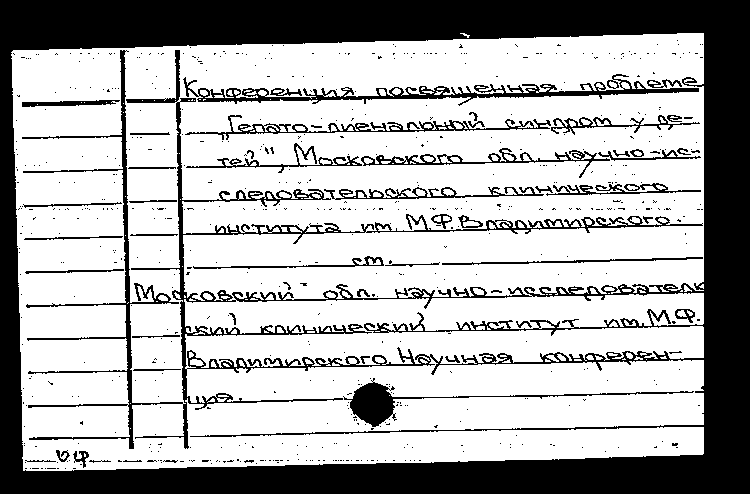 Конференция, посвященная проблеме
„Гепато-лиенальный синдром у де-
тей", Московского обл. научно-ис-
следовательского клинического
института им. М.Ф.Владимирского.
см.
Московский обл. научно-исследователь
ский клинический институт им. М.Ф.
Владимирского. Научная конферен-
ция.